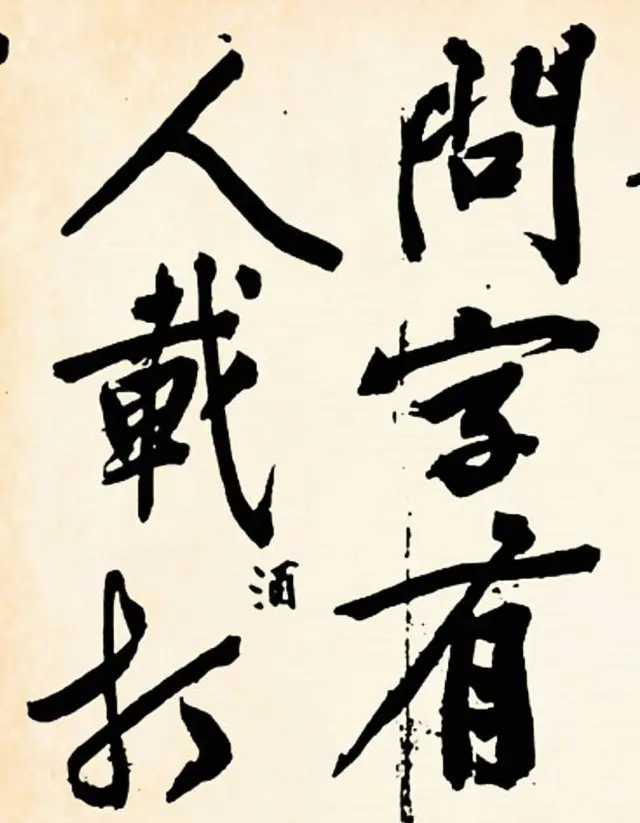 問字有
人載酒